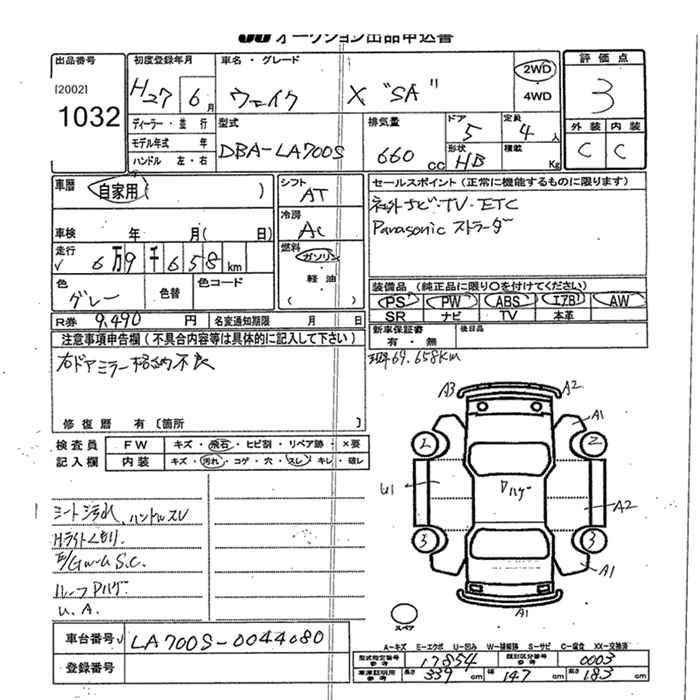 オークション出品申込書
出品番号
[2002]
1032
初度登録年月
H27 6月
車名・グレード
ウェイク X "SA"
2WD
4WD
評価点
3
外装 内装
C C
ディーラー・並行
モデル年式 年
ハンドル 左・右
型式
DBA-LA700S
排気量
660 cc
ドア
5
形状
HB
定員
4人
積載
Kg
車歴
自家用( )
車検 年 月( 日)
走行
√ 6万9千658km
色
グレー
色替
色コード
R券 9,490 円 名変通知期限 月 日
シフト
AT
冷房
AC
燃料
ガソリン
軽油
( )
セールスポイント(正常に機能するものに限ります)
社外ナビ・TV・ETC
Panasonic ストラーダ
装備品(純正品に限り○を付けてください)
PS PW ABS エアB AW
SR ナビ TV 本革
新車保証書
有・無
後日品
注意事項申告欄(不具合内容等は具体的に記入して下さい)
右ドアミラー格納不良
修復歴 有〔箇所 〕
検査員
記入欄
FW キズ・飛石・ヒビ割・リペア跡・×要
内装 キズ・汚れ・コゲ・穴・スレ・キレ・破レ
シート汚れ、ハンドルスレ
Hライトくもり
S.C.
ルーフPハゲ
U.A.
現69.658km
A3 A2
A1
2 2
U1
Pハゲ
A2
3 3
A1
A1
スペア
A-キズ E-エクボ U-凹み W-補修跡 S-サビ C-腐食 XX-交換済
車台番号 LA700S-0044080
登録番号
型式指定番号
参考
17854
類別区分番号
参考
0003
車庫証明用
参考
長さ 339 cm 幅 147 cm 高さ 183 cm